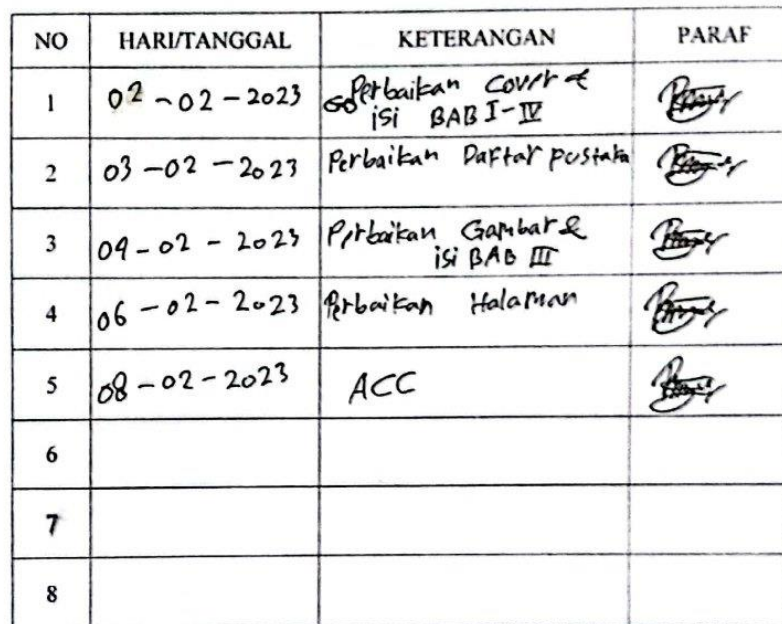 NO HARI/TANGGAL KETERANGAN PARAF
1 02-02-2023 Perbaikan Cover &
isi BAB I-IV
2 03-02-2023 Perbaikan Daftar pustaka
3 04-02-2023 Perbaikan Gambar &
isi BAB III
4 06-02-2023 Perbaikan Halaman
5 08-02-2023 ACC
6
7
8